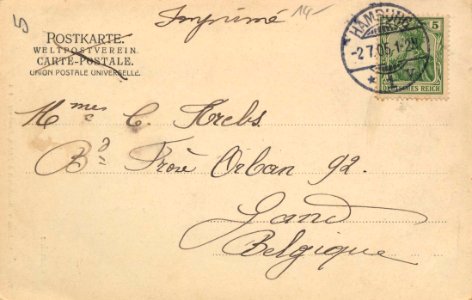 5
Imprimé
14-
POSTKARTE.
WELTPOSTVEREIN.
CARTE-POSTALE.
UNION POSTALE UNIVERSELLE.
HAMBURG
-2.7.05.1-2N
1
5
DEUTSCHES REICH
Mmes C. Krebs.
Bd Frère Orban 92.
Gand
Belgique